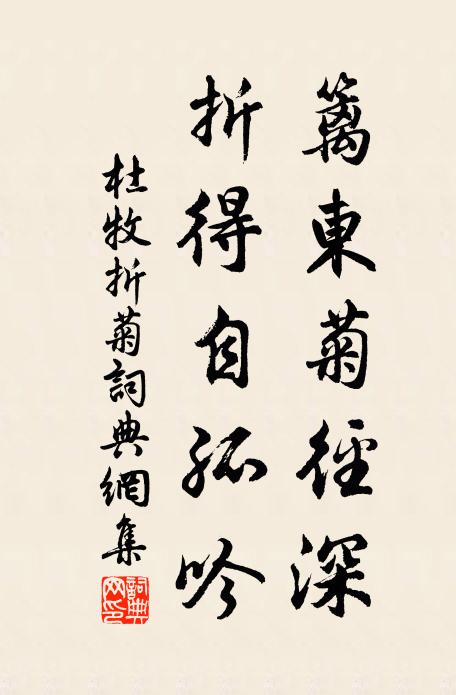 籬東菊徑深
折得自孤吟
杜牧折菊詞典網集
詞典网印